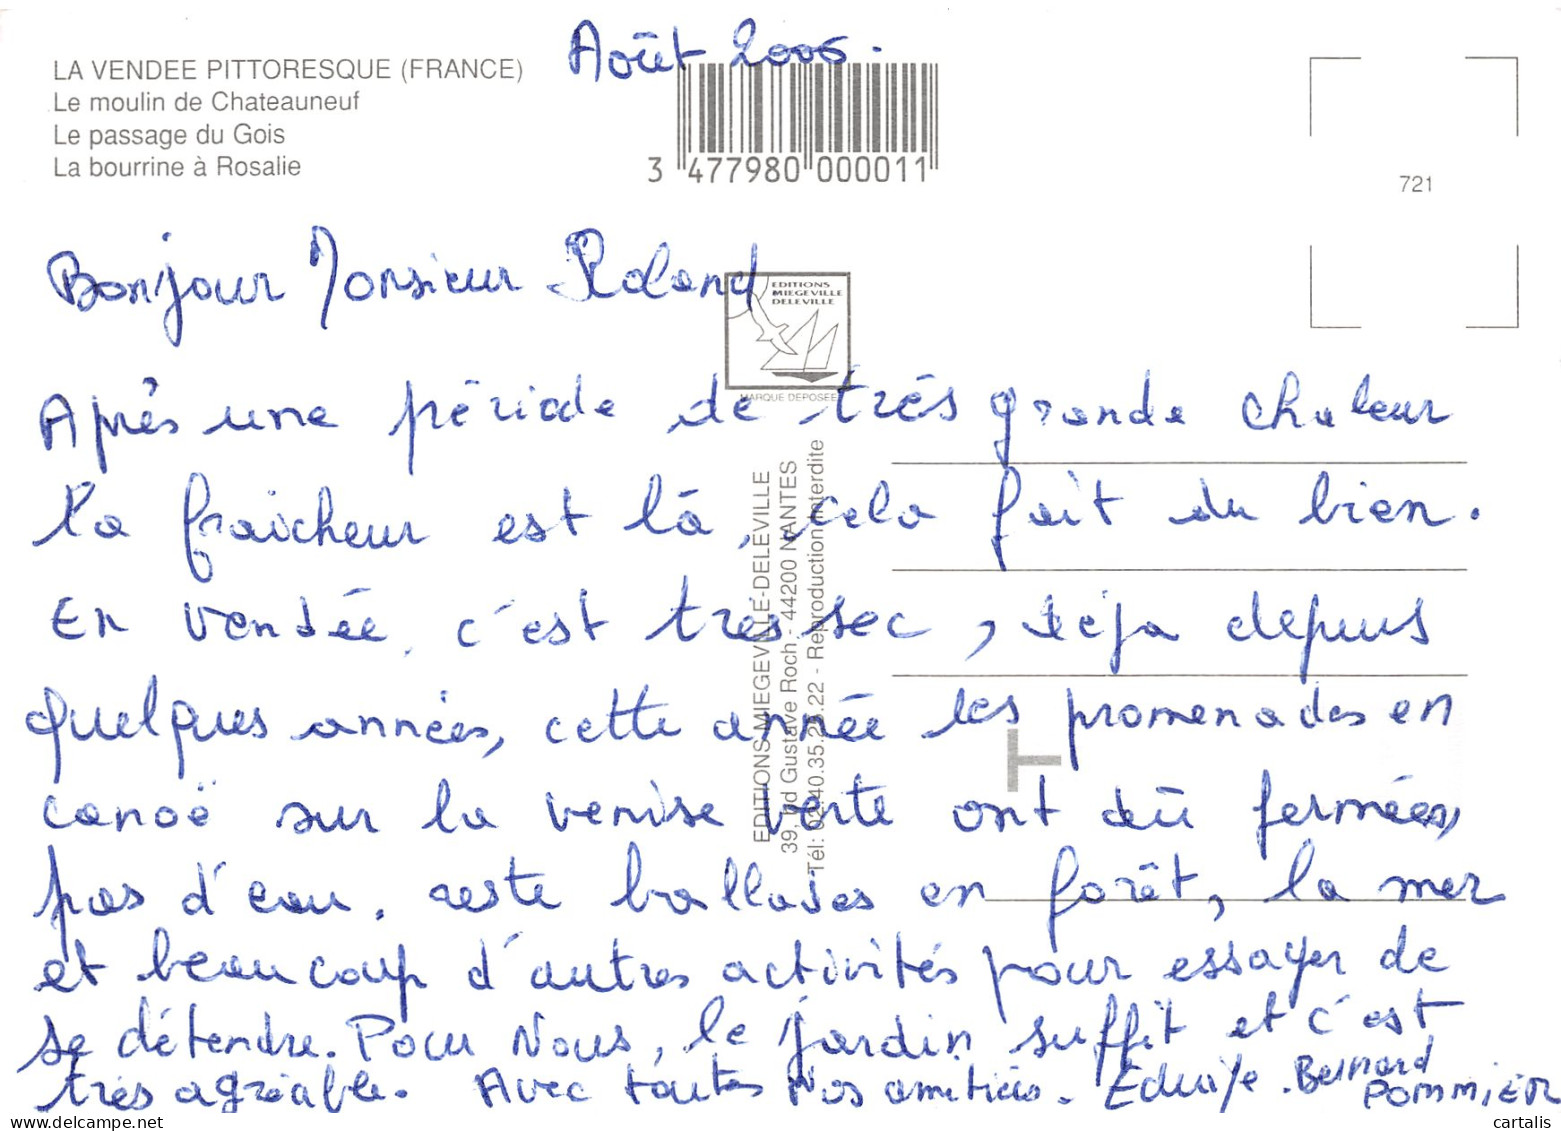 Août 2006.
LA VENDEE PITTORESQUE (FRANCE)
Le moulin de Chateauneuf
Le passage du Gois
La bourrine à Rosalie
3 477980 000011
721
Bonjour Monsieur Roland
EDITIONS
MIEGEVILLE
DELEVILLE
MARQUE DEPOSEE
Après une période de très grande chaleur
la fraicheur est là, cela fait du bien.
En vendée, c'est très sec, déja depuis
quelques années, cette année les promenades en
canoë sur la venise verte ont dû fermées,
pas d'eau, reste ballades en forêt, la mer
et beaucoup d'autres activités pour essayer de
se détendre. Pour Nous, le jardin suffit et c'est
très agréable. Avec toutes Nos amitiés. Edwige. Bernard
POMMIER
EDITIONS MIEGEVILLE-DELEVILLE
39, bd Gustave Roch - 44200 NANTES
Tél: 02.40.35.22 - Reproduction interdite
T
delcampe.net
cartalis